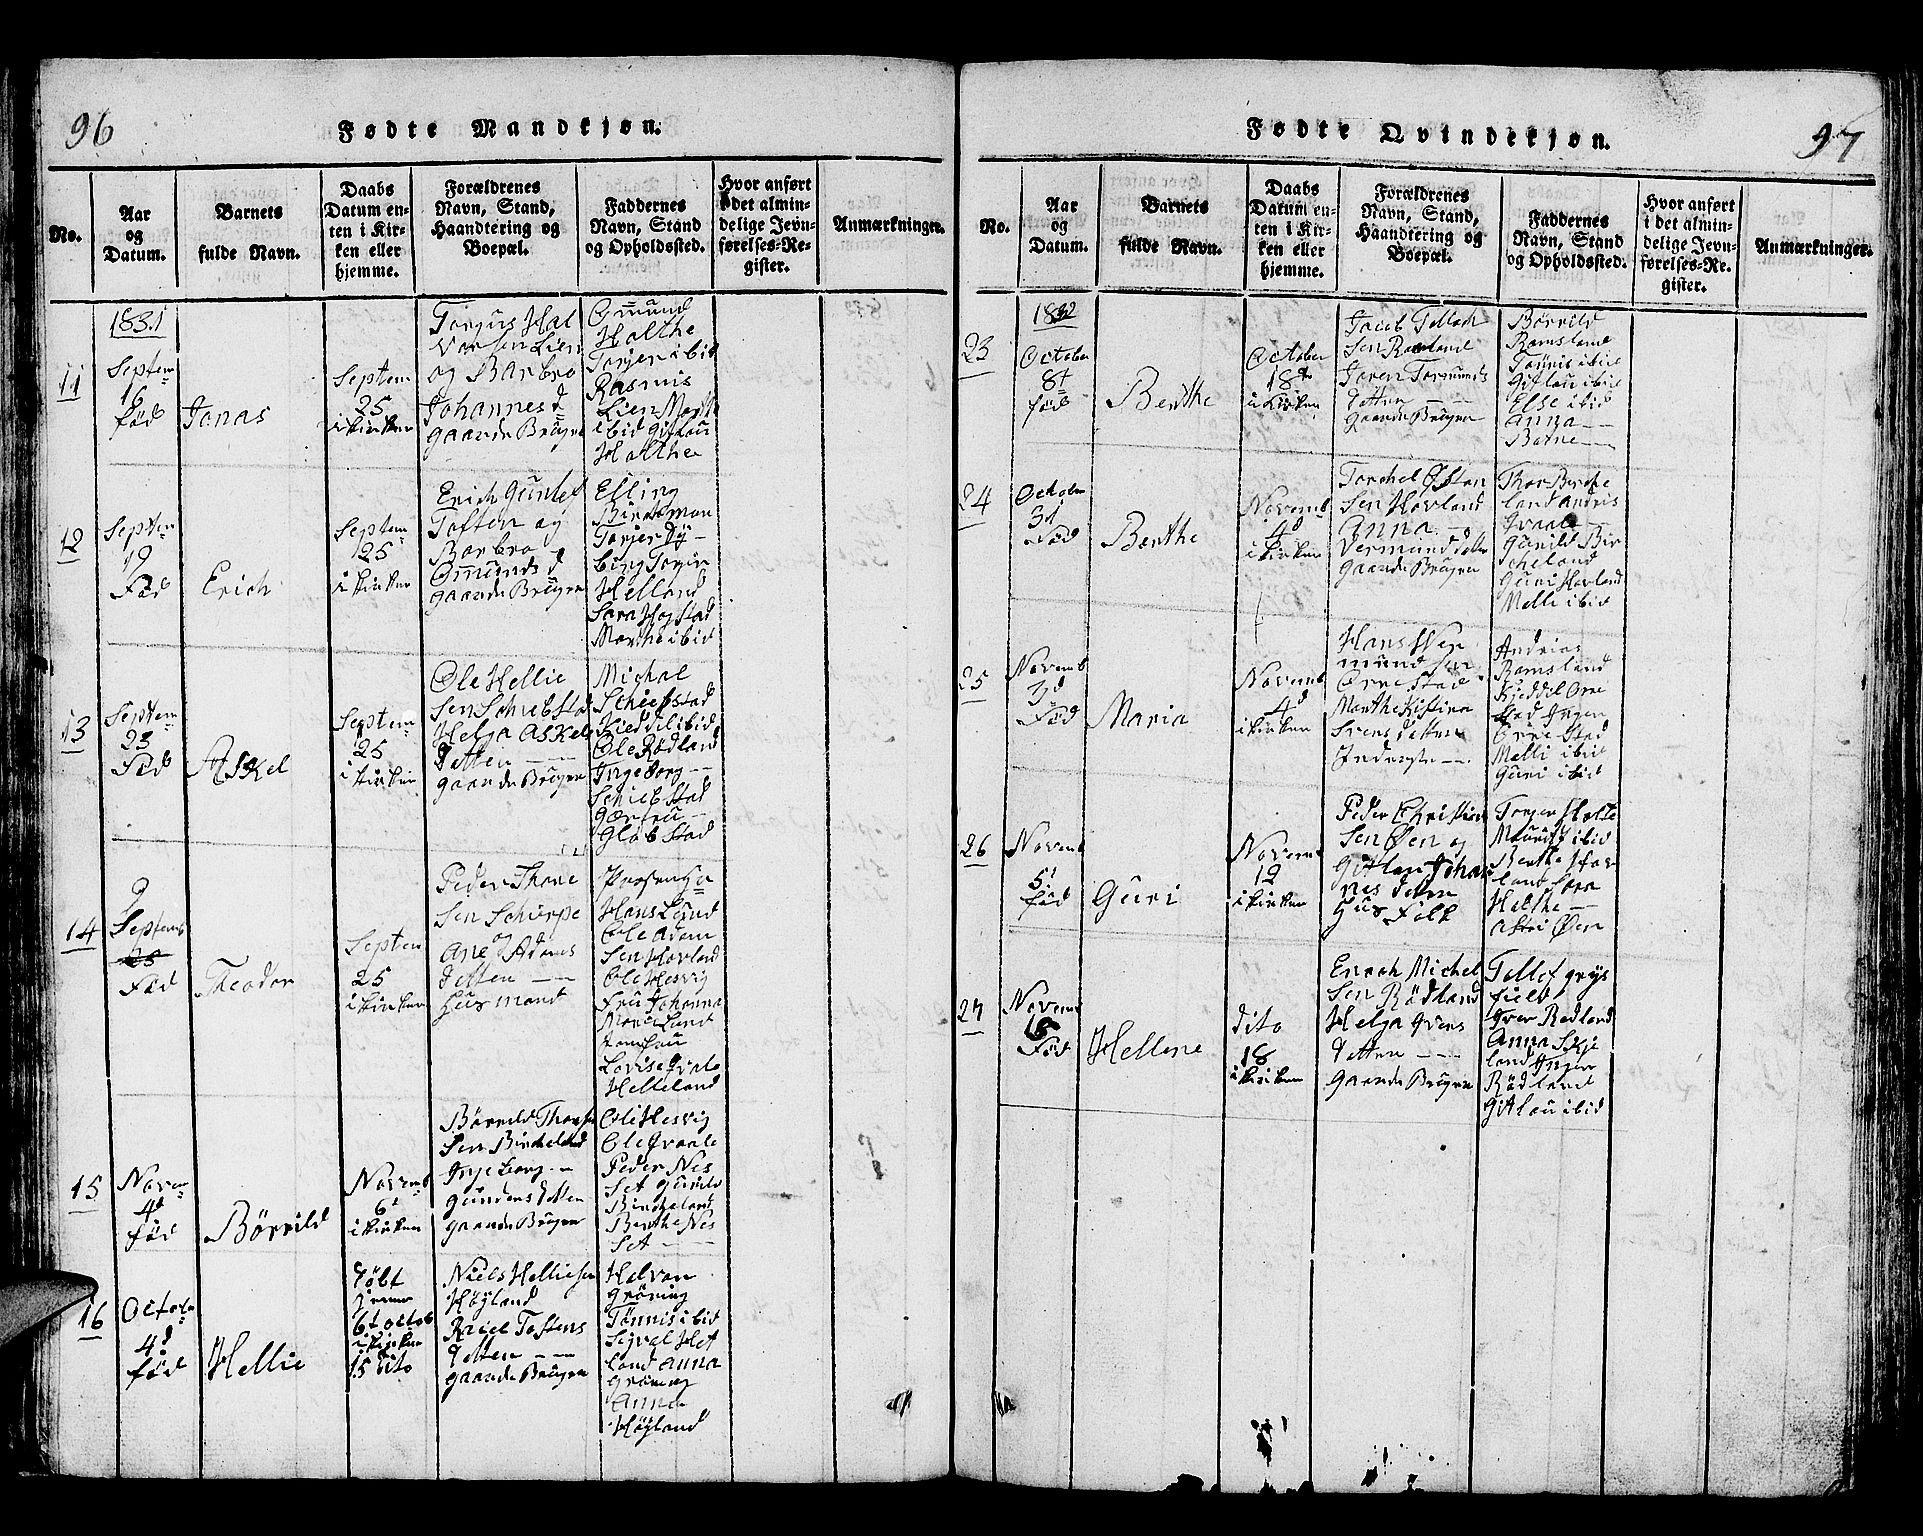 96
Fødte Mandkjøn.
No.
Aar
og
Datum.
Barnets
fulde Navn.
Daabs
Datum en-
ten i Kir-
ken eller
hjemme.
Forældrenes
Navn, Stand,
Haandtering og
Boepæl.
Faddernes
Navn, Stand
og Opholdssted.
Hvor anført
i det almin-
delige Jevn-
førelses-Re-
gister.
Anmærkninger.
1831
11
Septem
16
fød
Jonas
Septem
25
i kirken
Torgus Hal
vorsen Lien
og Barbro
Johannes d
gaarde Bruger
Omund
Halthe
Torjer ibid
Rasmis
Lien Marthe
ibid Gitlou
Halthe
12
Septem
19
Fød
Erich
Septem
25
i kirken
Erich
Toften og
Barbro
Omunds d
gaarde Bruger
Elling
Torjer Dy-
bing Torgir
Helland
Sara Hogstad
Marthe ibid
13
Septem
23
Fød
Askel
Septem
25
i kirken
Ole Hellie
Sen Schiebstad
Helga Askels
Detter
gaarde Bruger
Michal
Schiebstad
Kieddel ibid
Ole Rødland
Ingeborg
Schiebstad
Gløbstad
14
9
Septemb
25
Fød
Theodor
Septem
25
i kirken
Peder Thore
Sen Schirpe
og
Ane Adams
Detter
Husmand
Hans Lund
Ole Adam
Sen Hovland
Ole Hesvig
Fru Johanna
Marie Lund
Lovise
Helleland
15
Novem
4d
fød
Børrild
Novemb
6t
i kirken
Børrild Thor
Sen Bircheland
Ingeborg
Gundens Detter
gaarde Bruger
Ole Hesvig
Ole Graale
Peder Nes
Set Gunild
Bircheland
Berthe Nes
Set
16
Octob
4d
fød
Hellie
Døbt
hjemme
6t octob
i kirken
15 dito
Niels Helliesen
Høyland
Rachel Toftens
Detter
gaarde Bruger
Halvor
Grøning
Tønnis ibid
Sigval Het
land Anna
Grøning
Anna
Høyland
97
Fødte Qvindekjøn.
No.
Aar
og
Datum.
Barnets
fulde Navn.
Daabs
Datum en-
ten i Kir-
ken eller
hjemme.
Forældrenes
Navn, Stand,
Haandtering og
Boepæl.
Faddernes
Navn, Stand
og Opholdssted.
Hvor anført
i det almin-
delige Jevn-
førelses-Re-
gister.
Anmærkninger.
1832
23
October
8t
fød
Berthe
October
18t
i kirken
Jacob Tollach
Sen Ramsland
Joren Tormunds
Detter
gaarde Bruger
Børrild
Ramsland
Tønnis ibid
Gitlou ibid
Else ibid
Anna
Barne
24
October
31
Fød
Berthe
Novemb
4d
i kirken
Torchel Østen
Sen Hovland
Anna
Vermund detter
gaarde Bruger
Thor Birche
land Andris
Graale
Gunild Bir
cheland
Guri Hovland
Melli ibid
25
Novemb
3d
Fød
Maria
Novemb
4d
i kirken
Hans
mund Sen
Ørrestad
Marthe Kistina
Svens detter
Inderste
Andrias
Ramsland
Kieddel Ørre
stad Inger
Ørrestad
Melli ibid
Guri ibid
26
Novemb
5t
fød
Guri
Novemb
12
i kirken
Peder Christian
Sen Øen og
Gitlou Johan
nes detter
Hus Folk
Torger Halte
Mauritz ibid
Berthe Hov
land Sara
Halthe
Astri Øen
27
Novemb
Fød
Hellene
dito
18
i kirken
Enoch Michel
Sen Rødland
Helga Ivers
Detter
gaarde Bruger
Tollef Grys
field
Iver Rødland
Anna Skje
land Inger
Rødland
Gitlou ibid